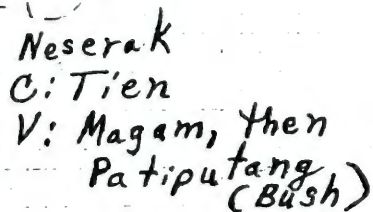 Neserak
C: Tien
V: Magam, then
Patiputang
(Bush)